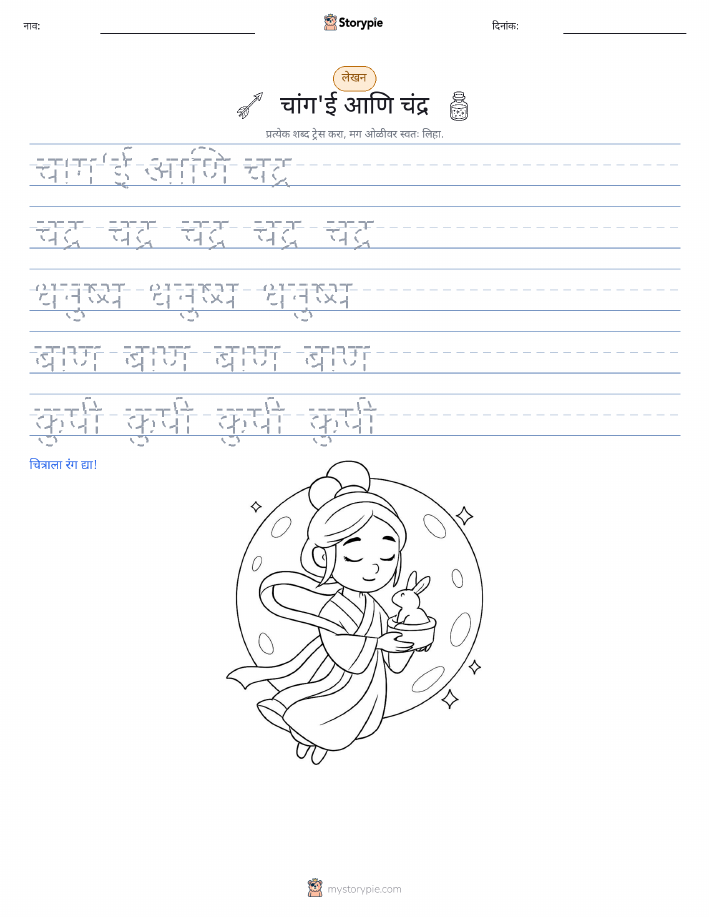 नाव:
Storypie
दिनांक:
लेखन
चांग'ई आणि चंद्र
प्रत्येक शब्द ट्रेस करा, मग ओळीवर स्वतः लिहा.
चांग'ई आणि चंद्र
चंद्र चंद्र चंद्र चंद्र चंद्र
धनुष्य धनुष्य धनुष्य
बाण बाण बाण बाण
कुपी कुपी कुपी कुपी
चित्राला रंग द्या!
mystorypie.com